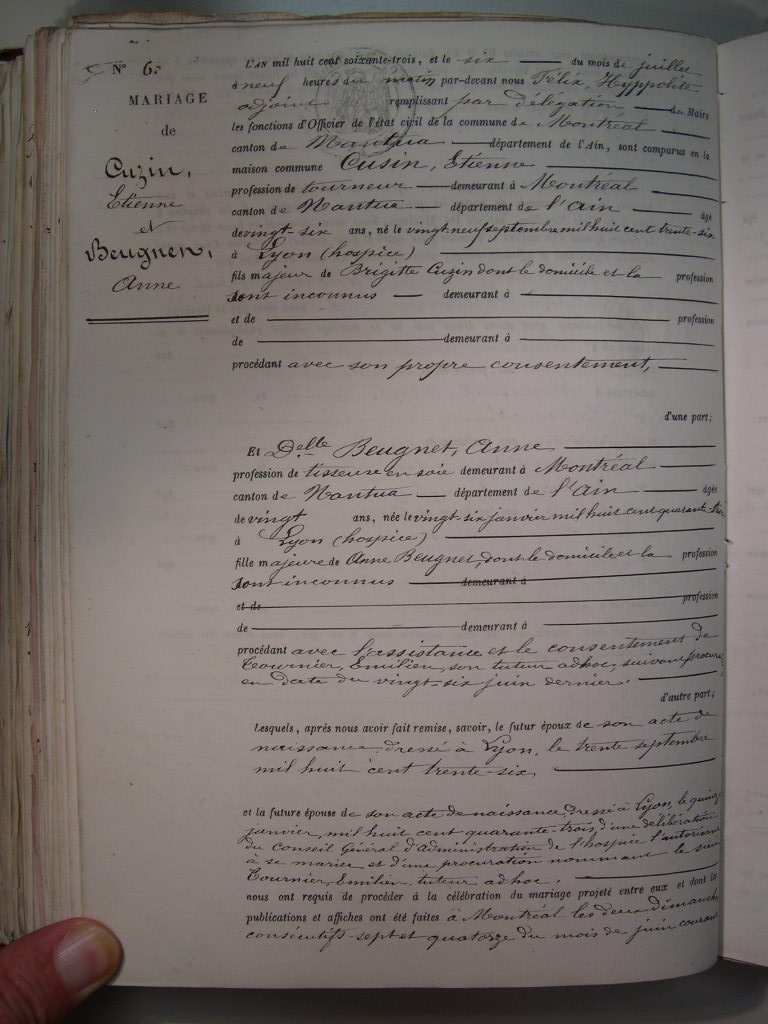 N° 6.
MARIAGE
de
Cuzin,
Etienne
et
Beugnet,
Anne
L'AN mil huit cent soixante-trois, et le six du mois de juillet
à neuf heures du matin par-devant nous Félix, Hyppolite
adjoint remplissant par délégation du Maire
les fonctions d'Officier de l'état civil de la commune de Montréal
canton de Nantua département de l'Ain, sont comparus en la
maison commune Cusin, Etienne
profession de tourneur demeurant à Montréal
canton de Nantua département de l'ain âgé
de vingt-six ans, né le vingt neuf septembre mil huit cent trente-six
à Lyon (hospice)
fils majeur de Brigitte Cuzin dont le domicile et la profession
sont inconnus demeurant à
et de profession
de demeurant à
procédant avec son propre consentement,
d'une part;
Et Delle Beugnet, Anne
profession de tisseuse en soie demeurant à Montréal
canton de Nantua département de l'ain âgée
de vingt ans, née le vingt-six janvier mil huit cent quarante
à Lyon (hospice)
fille majeure de Anne Beugnet, dont le domicile et la profession
sont inconnus demeurant à
et de profession
de demeurant à
procédant avec l'assistance et le consentement de
Tournier, Emilien, son tuteur adhoc, suivant
en date du vingt-six juin dernier.
d'autre part;
Lesquels, après nous avoir fait remise, savoir, le futur époux de son acte de
naissance dressé à Lyon, le trente septembre
mil huit cent trente-six,
et la future épouse de son acte de naissance, dressé à Lyon, le
janvier, mil huit cent quarante-trois, d'une délibération
du Conseil Général d'Administration de l'hospice l'autorisant
à se marier et d'une procuration nommant le sieur
Tournier, Emilien, tuteur adhoc.
nous ont requis de procéder à la célébration du mariage projeté entre eux et dont les
publications et affiches ont été faites à Montréal les deux dimanches
consécutifs sept et quatorze du mois de juin courant